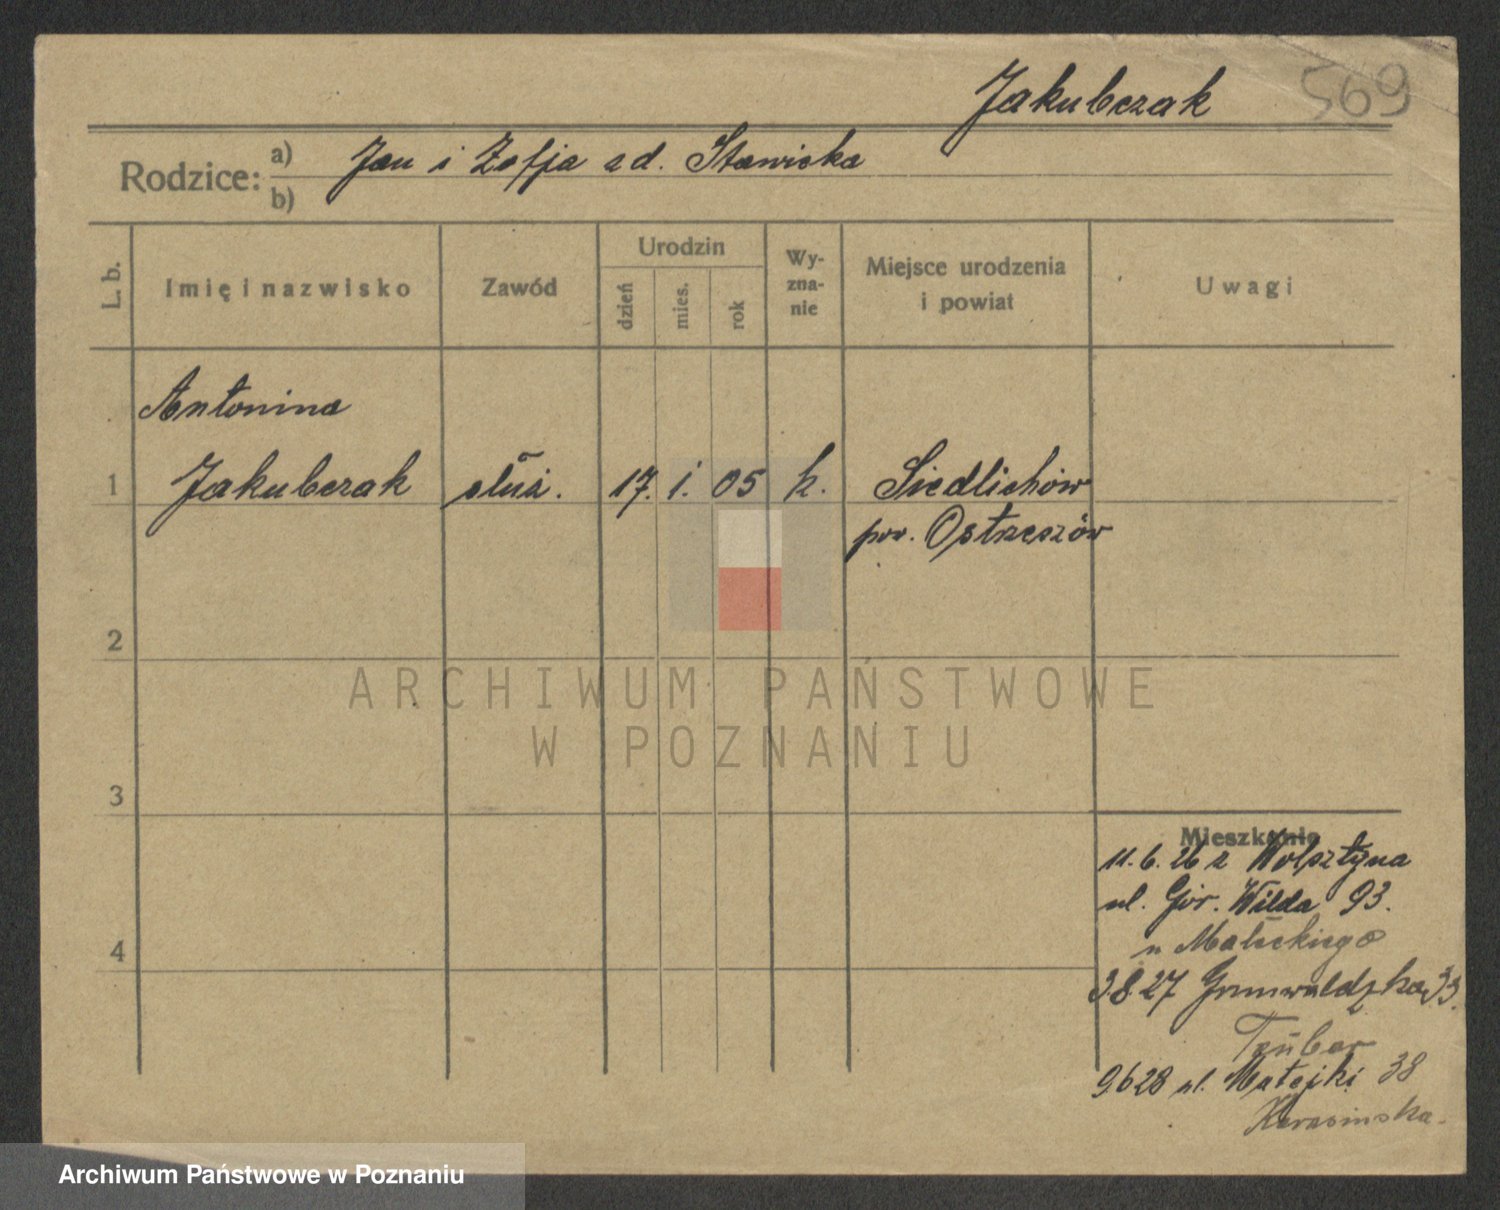 Jakubczak 569
Rodzice: a) Jan i Zofja zd. Stawicka
b)
L. b. Imię i nazwisko Zawód Urodzin dzień mies. rok Wyznanie Miejsce urodzenia i powiat Uwagi
Antonina
1 Jakubczak służ. 17. 1. 05 k. Siedlichów
pow. Ostrzeszów
2
ARCHIWUM PAŃSTWOWE
W POZNANIU
3
Mieszkanie
11.6.26 z Wolsztyna
ul. Gór. Wilda 93.
u Małeckiego
4
3.8.27 Grunwaldzka 33.
9.6.28 ul. Matejki 38
Karasinska.
Archiwum Państwowe w Poznaniu